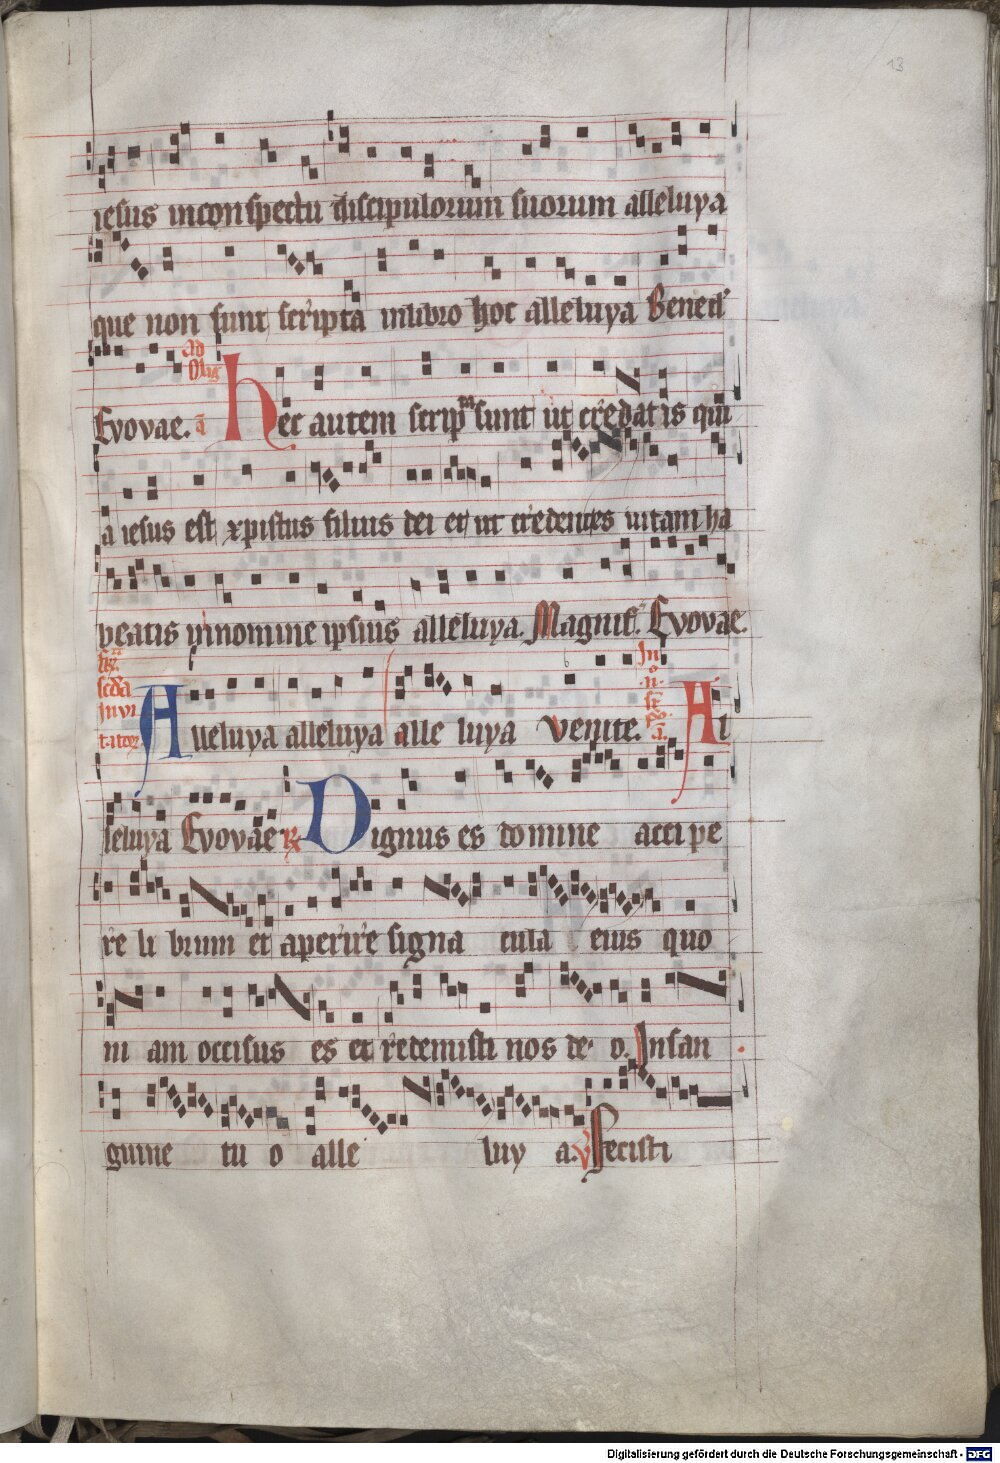 13
iesus inconspectu discipulorum suorum alleluya
que non sunt scripta inlibro hoc alleluya Bened'
Ad
Mag
Evovae. a Hec autem scripta sunt ut credatis qui
a iesus est xpistus filius dei et ut credentes uitam ha
beatis yinomine ipsius alleluya. Magnif. Evovae.
scda
Inui
tator
Alleluya alleluya alle luya Venite. Al
In
leluya Evovae R Dignus es domine acci pe
re li brum et aperire signa cula eius quo
ni am occisus es et redemisti nos de o. Insan
guine tu o alle luy a. V Fecisti
Digitalisierung gefördert durch die Deutsche Forschungsgemeinschaft - DFG